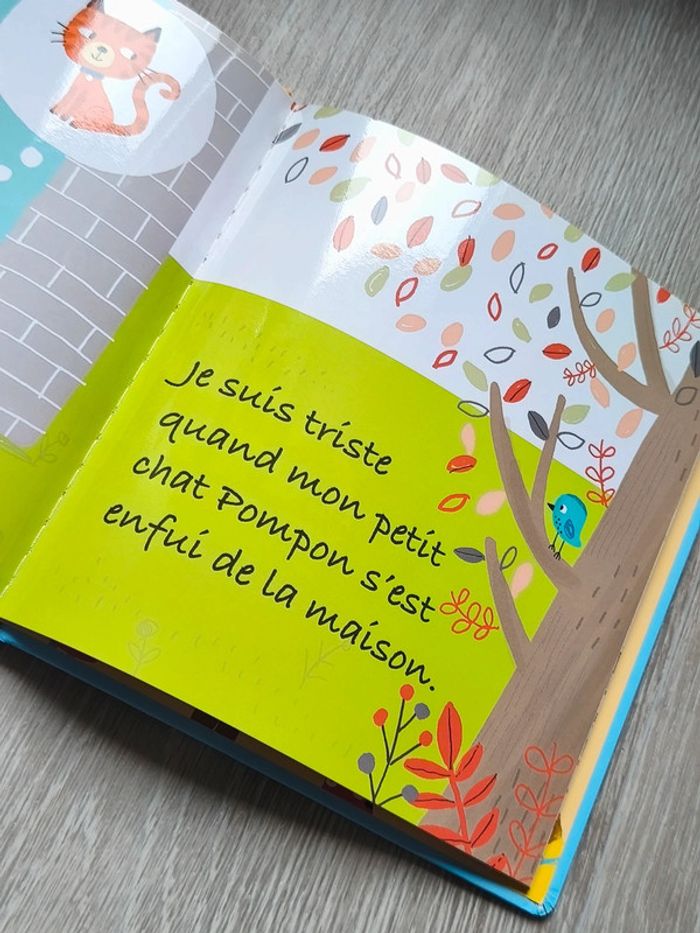 Je suis triste
quand mon petit
chat Pompon s'est
enfui de la maison.